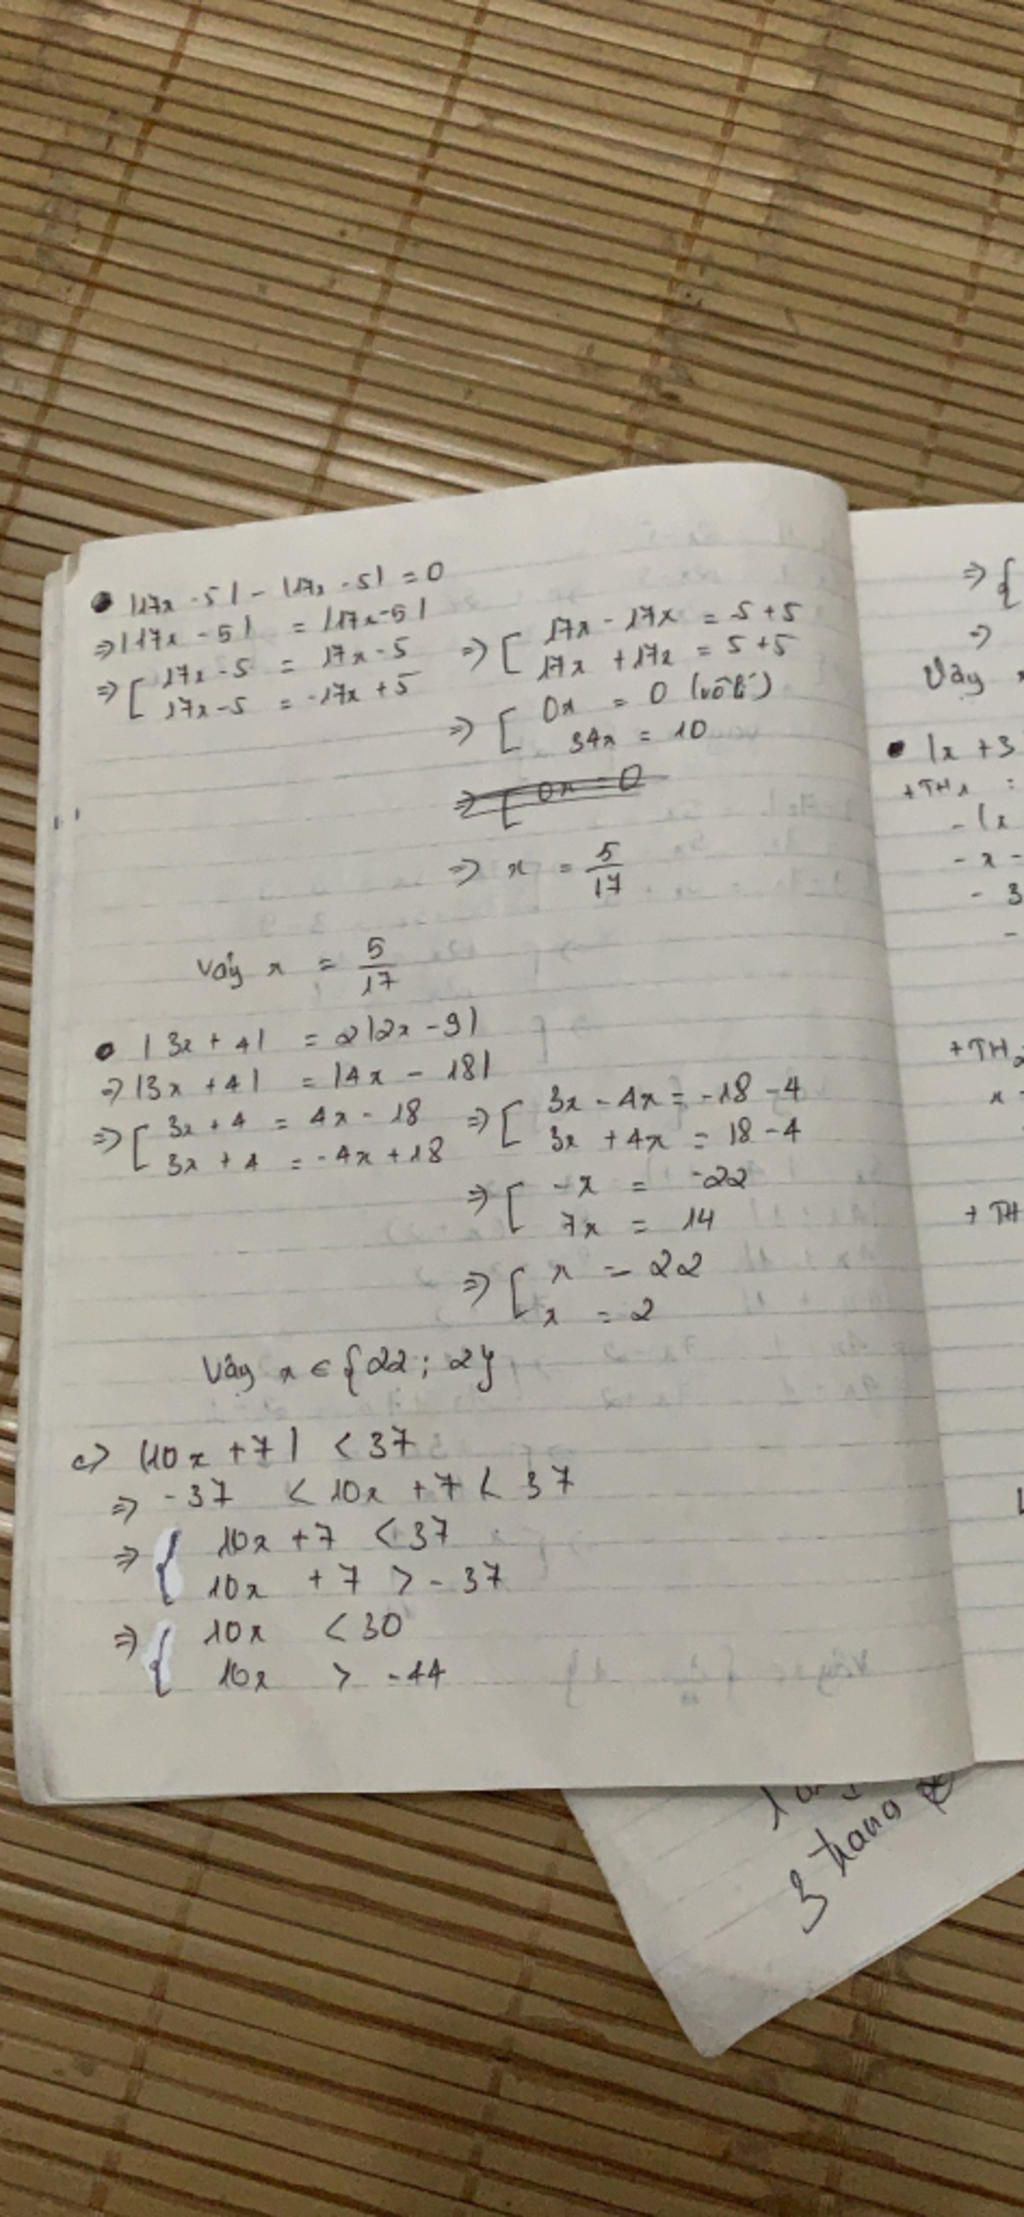 |17x - 5| - |17x - 5| = 0
⇒ |17x - 5| = |17x - 5|
⇒ [ 17x - 5 = 17x - 5
17x - 5 = -17x + 5
⇒ [ 17x - 17x = -5 + 5
17x + 17x = 5 + 5
⇒ [ 0x = 0 (vô lí)
34x = 10
⇒ [ 0x = 0
⇒ x = 5/17
Vậy x = 5/17
|3x + 4| = 2|2x - 9|
⇒ |3x + 4| = |4x - 18|
⇒ [ 3x + 4 = 4x - 18
3x + 4 = -4x + 18
⇒ [ 3x - 4x = -18 - 4
3x + 4x = 18 - 4
⇒ [ -x = -22
7x = 14
⇒ [ x = 22
x = 2
Vậy x ∈ {22; 2}
c) |10x + 7| < 37
⇒ -37 < 10x + 7 < 37
⇒ { 10x + 7 < 37
10x + 7 > -37
⇒ { 10x < 30
10x > -44
⇒ {
⇒
Vậy
|x + 3
+ TH1 :
- |x
- x -
- 3
-
+ TH2
x
+ TH
3 tháng